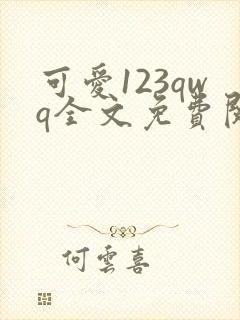 可愛123qw
q全文免費閱
何雲喜